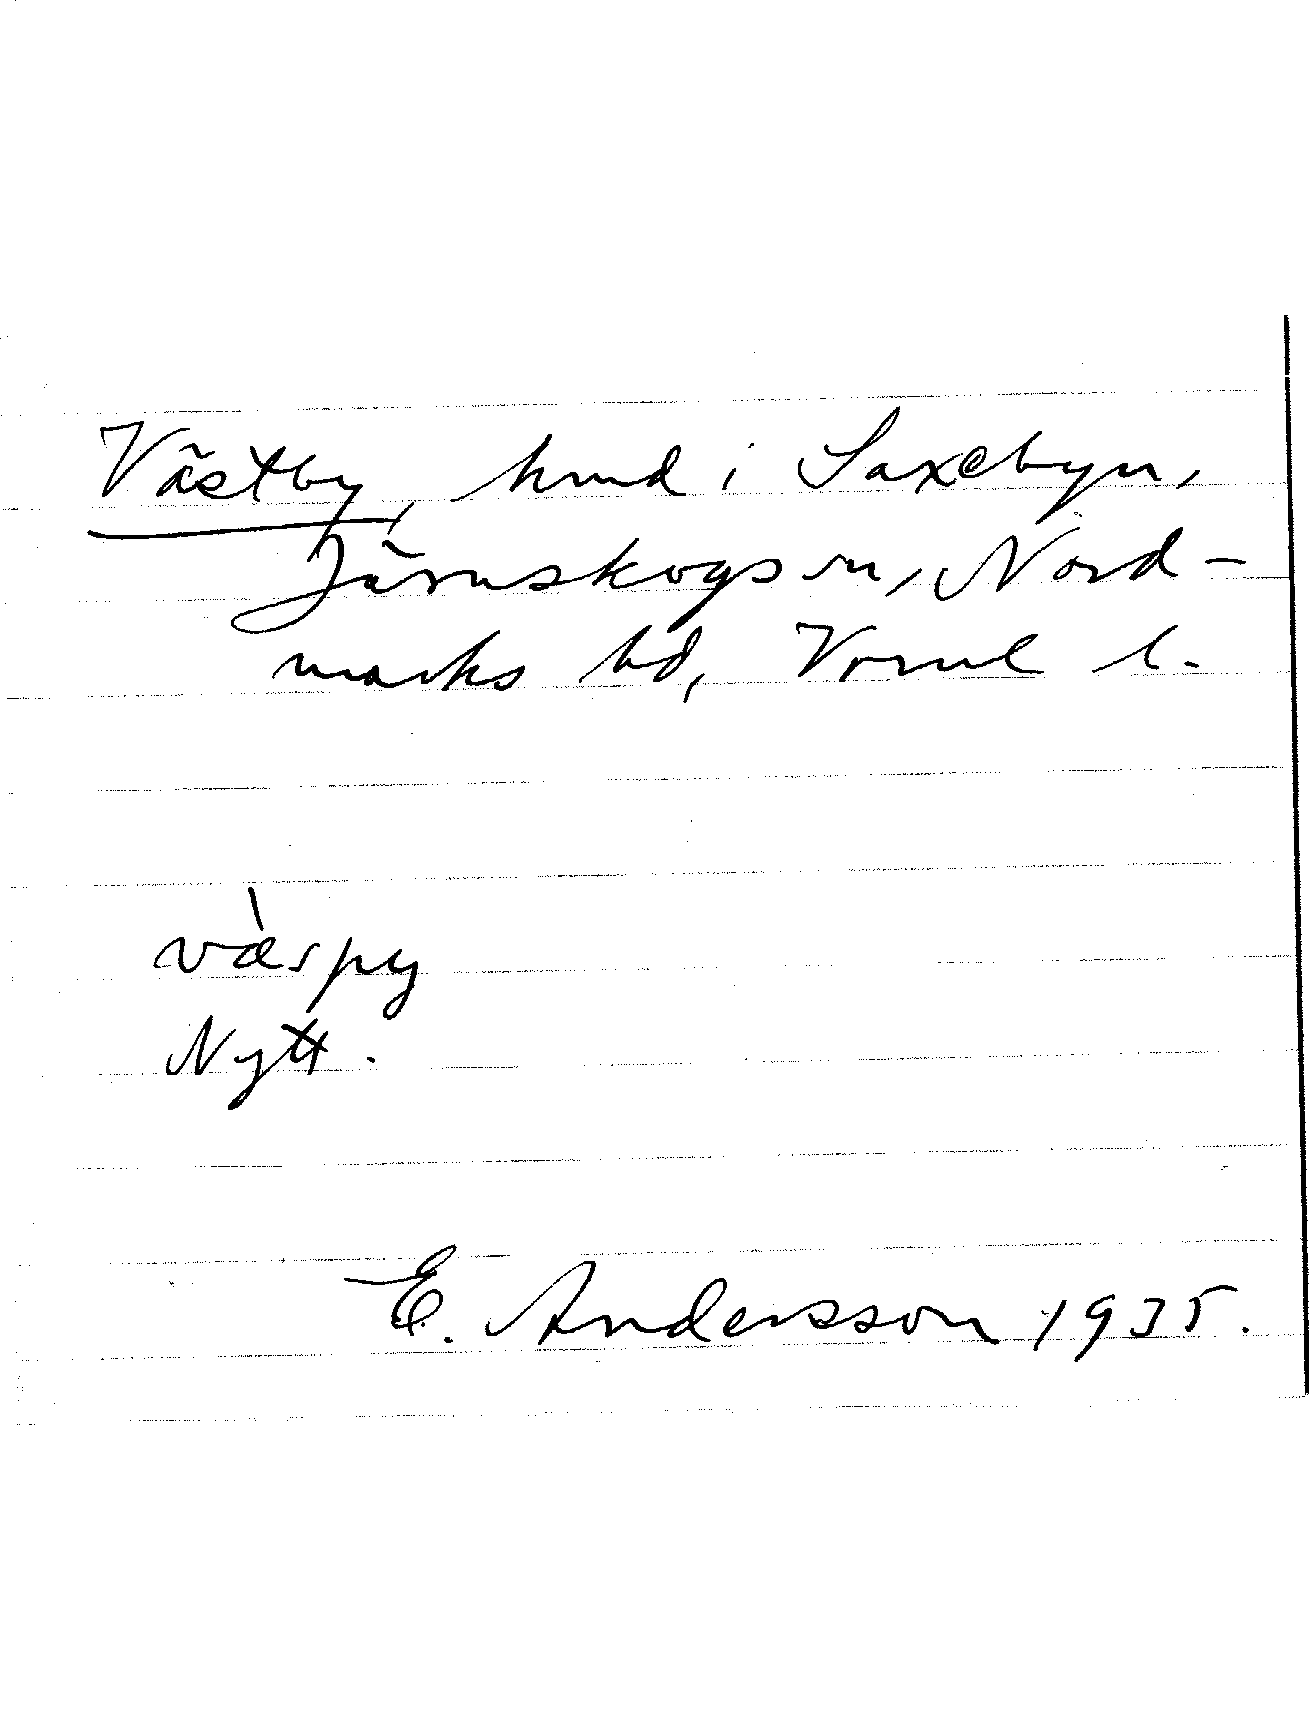 Västby, hmd i Saxebyn,
Järnskogs sn, Nord-
marks hd, Vrml l.
væ̀spy
Nytt.
E. Andersson 1935.